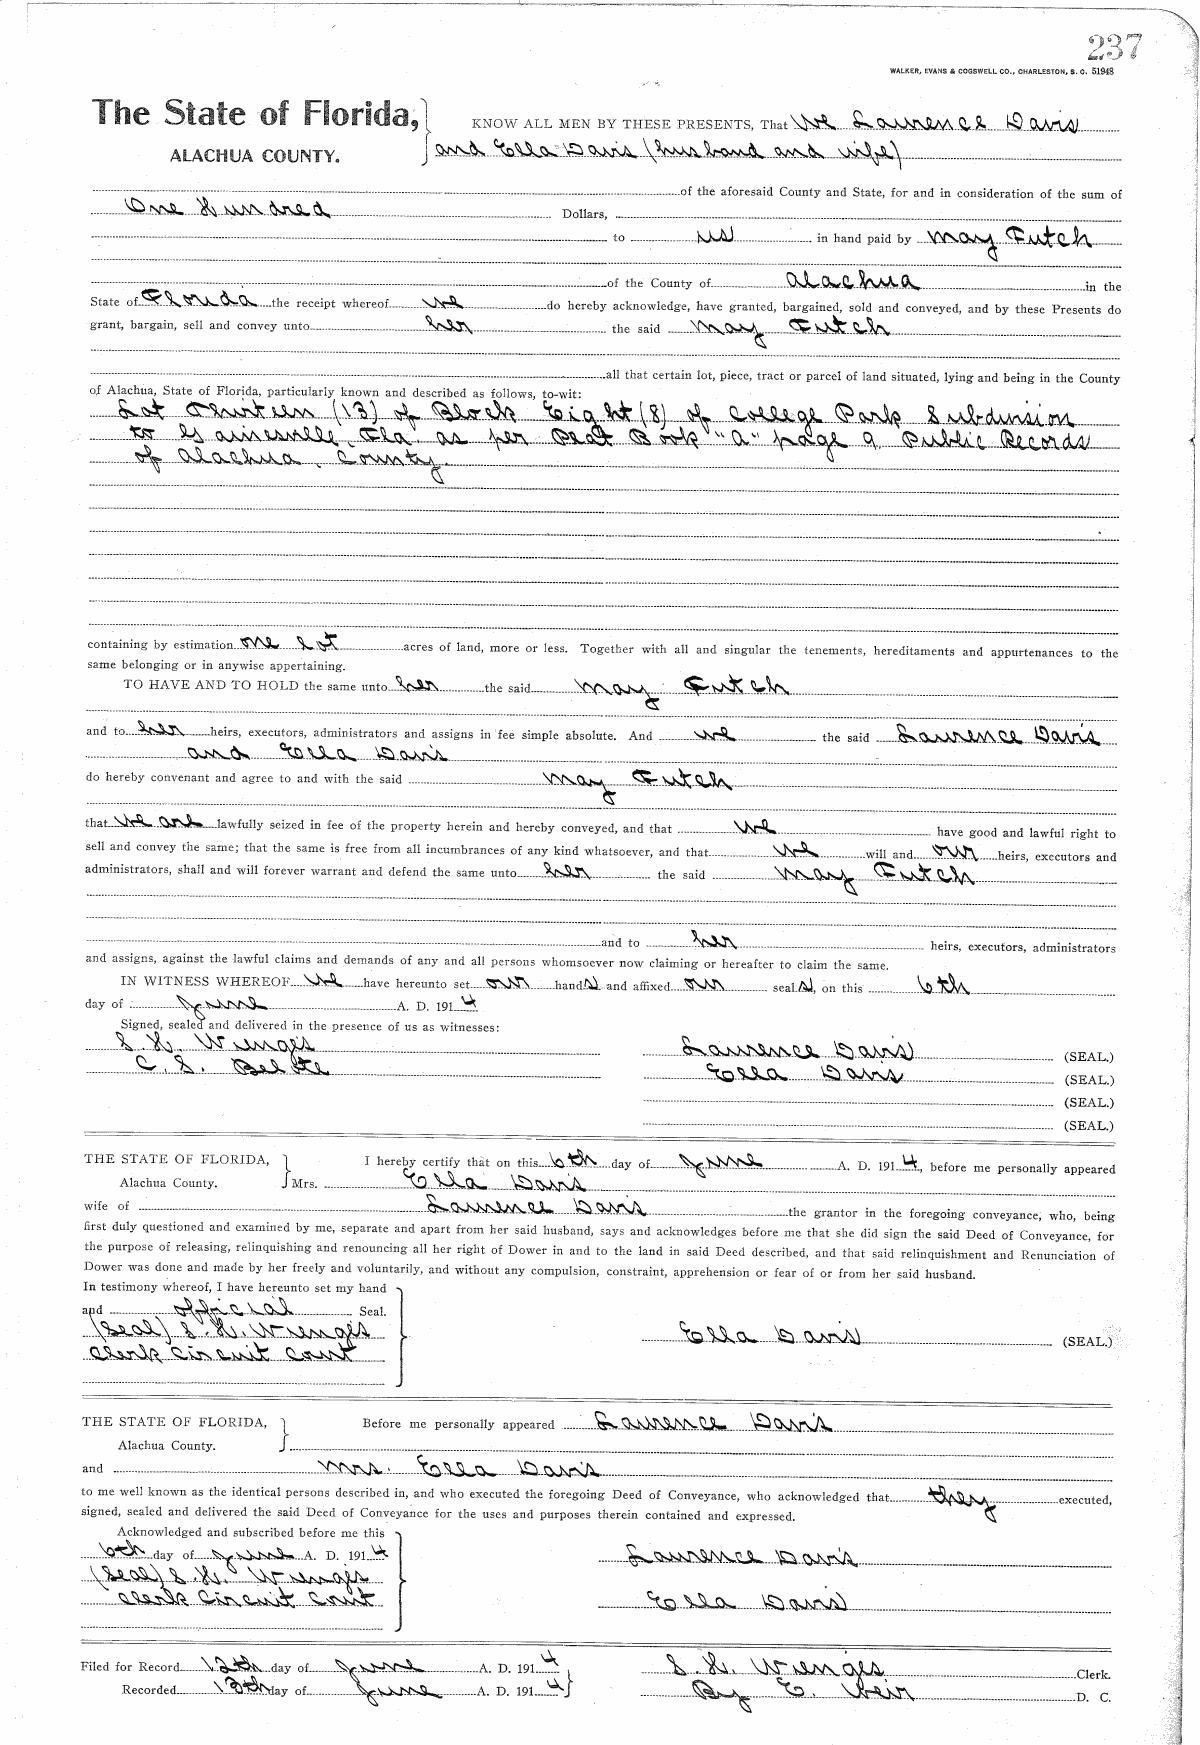 237
WALKER, EVANS & COGSWELL CO., CHARLESTON, S. C. 51948
The State of Florida,
KNOW ALL MEN BY THESE PRESENTS, That We Laurence Davis
ALACHUA COUNTY.
and Ella Davis (husband and wife)
of the aforesaid County and State, for and in consideration of the sum of
One Hundred Dollars,
to us in hand paid by May Futch
of the County of Alachua in the
State of Florida the receipt whereof we do hereby acknowledge, have granted, bargained, sold and conveyed, and by these Presents do
grant, bargain, sell and convey unto her the said May Futch
all that certain lot, piece, tract or parcel of land situated, lying and being in the County
of Alachua, State of Florida, particularly known and described as follows, to-wit:
Lot Thirteen (13) of Block Eight (8) of College Park Subdivision
to Gainesville, Fla as per Plat Book "A" page 9 Public Records
of Alachua, County.
containing by estimation one Lot acres of land, more or less. Together with all and singular the tenements, hereditaments and appurtenances to the
same belonging or in anywise appertaining.
TO HAVE AND TO HOLD the same unto her the said May Futch
and to her heirs, executors, administrators and assigns in fee simple absolute. And we the said Laurence Davis
and Ella Davis
do hereby convenant and agree to and with the said May Futch
that we are lawfully seized in fee of the property herein and hereby conveyed, and that we have good and lawful right to
sell and convey the same; that the same is free from all incumbrances of any kind whatsoever, and that we will and our heirs, executors and
administrators, shall and will forever warrant and defend the same unto her the said May Futch
and to her heirs, executors, administrators
and assigns, against the lawful claims and demands of any and all persons whomsoever now claiming or hereafter to claim the same.
IN WITNESS WHEREOF we have hereunto set our hands and affixed our seals, on this 6th
day of June A. D. 1914
Signed, sealed and delivered in the presence of us as witnesses:
S. H. Wienges
Laurence Davis (SEAL.)
C. S.
Ella Davis (SEAL.)
(SEAL.)
(SEAL.)
THE STATE OF FLORIDA, I hereby certify that on this 6th day of June A. D. 1914, before me personally appeared
Alachua County. Mrs. Ella Davis
wife of Laurence Davis the grantor in the foregoing conveyance, who, being
first duly questioned and examined by me, separate and apart from her said husband, says and acknowledges before me that she did sign the said Deed of Conveyance, for
the purpose of releasing, relinquishing and renouncing all her right of Dower in and to the land in said Deed described, and that said relinquishment and Renunciation of
Dower was done and made by her freely and voluntarily, and without any compulsion, constraint, apprehension or fear of or from her said husband.
In testimony whereof, I have hereunto set my hand
and official Seal.
(Seal) S. H. Wienges
Ella Davis (SEAL.)
Clerk Circuit Court
THE STATE OF FLORIDA, Before me personally appeared Laurence Davis
Alachua County.
and Mrs. Ella Davis
to me well known as the identical persons described in, and who executed the foregoing Deed of Conveyance, who acknowledged that they executed,
signed, sealed and delivered the said Deed of Conveyance for the uses and purposes therein contained and expressed.
Acknowledged and subscribed before me this
6th day of June A. D. 1914
Laurence Davis
(Seal) S. H. Wienges
Clerk Circuit Court
Ella Davis
Filed for Record 12th day of June A. D. 1914
S. H. Wienges Clerk.
Recorded 13th day of June A. D. 1914
By E. Weir D. C.